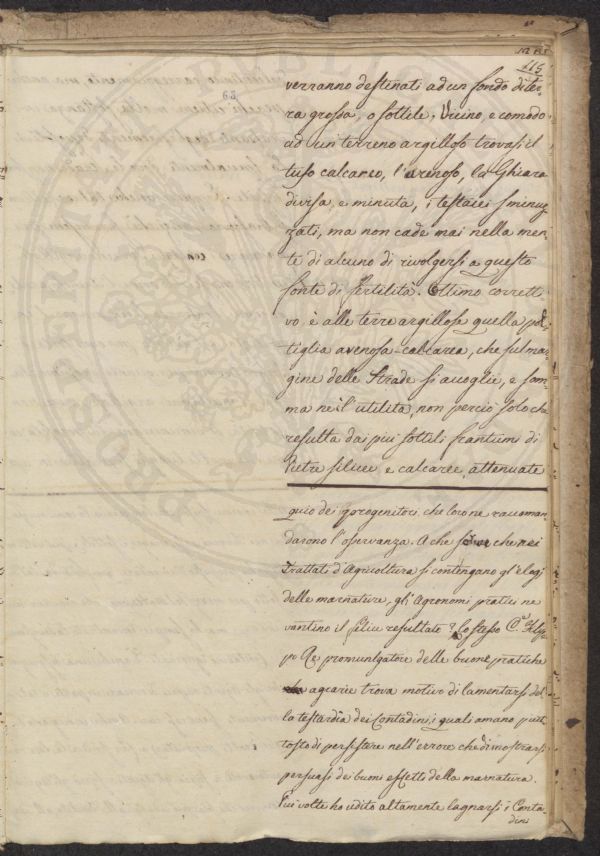 115
63
verranno destinati ad un fondo di ter-
ra grossa, o sottile. Vicino, e comodo
ad un terreno argilloso trovasi il
tufo calcareo, l'arenoso, la Ghiara
diversa, e minuta, i testacei sminuz-
zati, ma non cade mai nella men-
te di alcuno di rivolgersi a questo
fonte di fertilità. Ottimo corretti
vo è alle terre argillose quella pol-
tiglia arenosa-calcarea, che sul mar
gine delle Strade si accoglie, e som
ma nè è l'utilità, non perciò solo che
resulta dai più sottili frantumi di
Pietre silicee e calcaree, attenuate
quio dei progenitori che loro ne raccoman
darono l'osservanza. A che che nei
Trattati d'Agricoltura si contengano gl'elogi
delle marnature, gli Agronomi pratici ne
vantino il felice resultato? Lo stesso
Re promulgatore delle buone pratiche
agrarie trova motivo di lamentarsi del
la testardia dei Contadini, i quali amano piut
tosto di persistere nell'errore che dimostrarsi
persuasi dei buoni effetti della marnatura.
Più volte ho udito altamente lagnarsi i Conta
dini